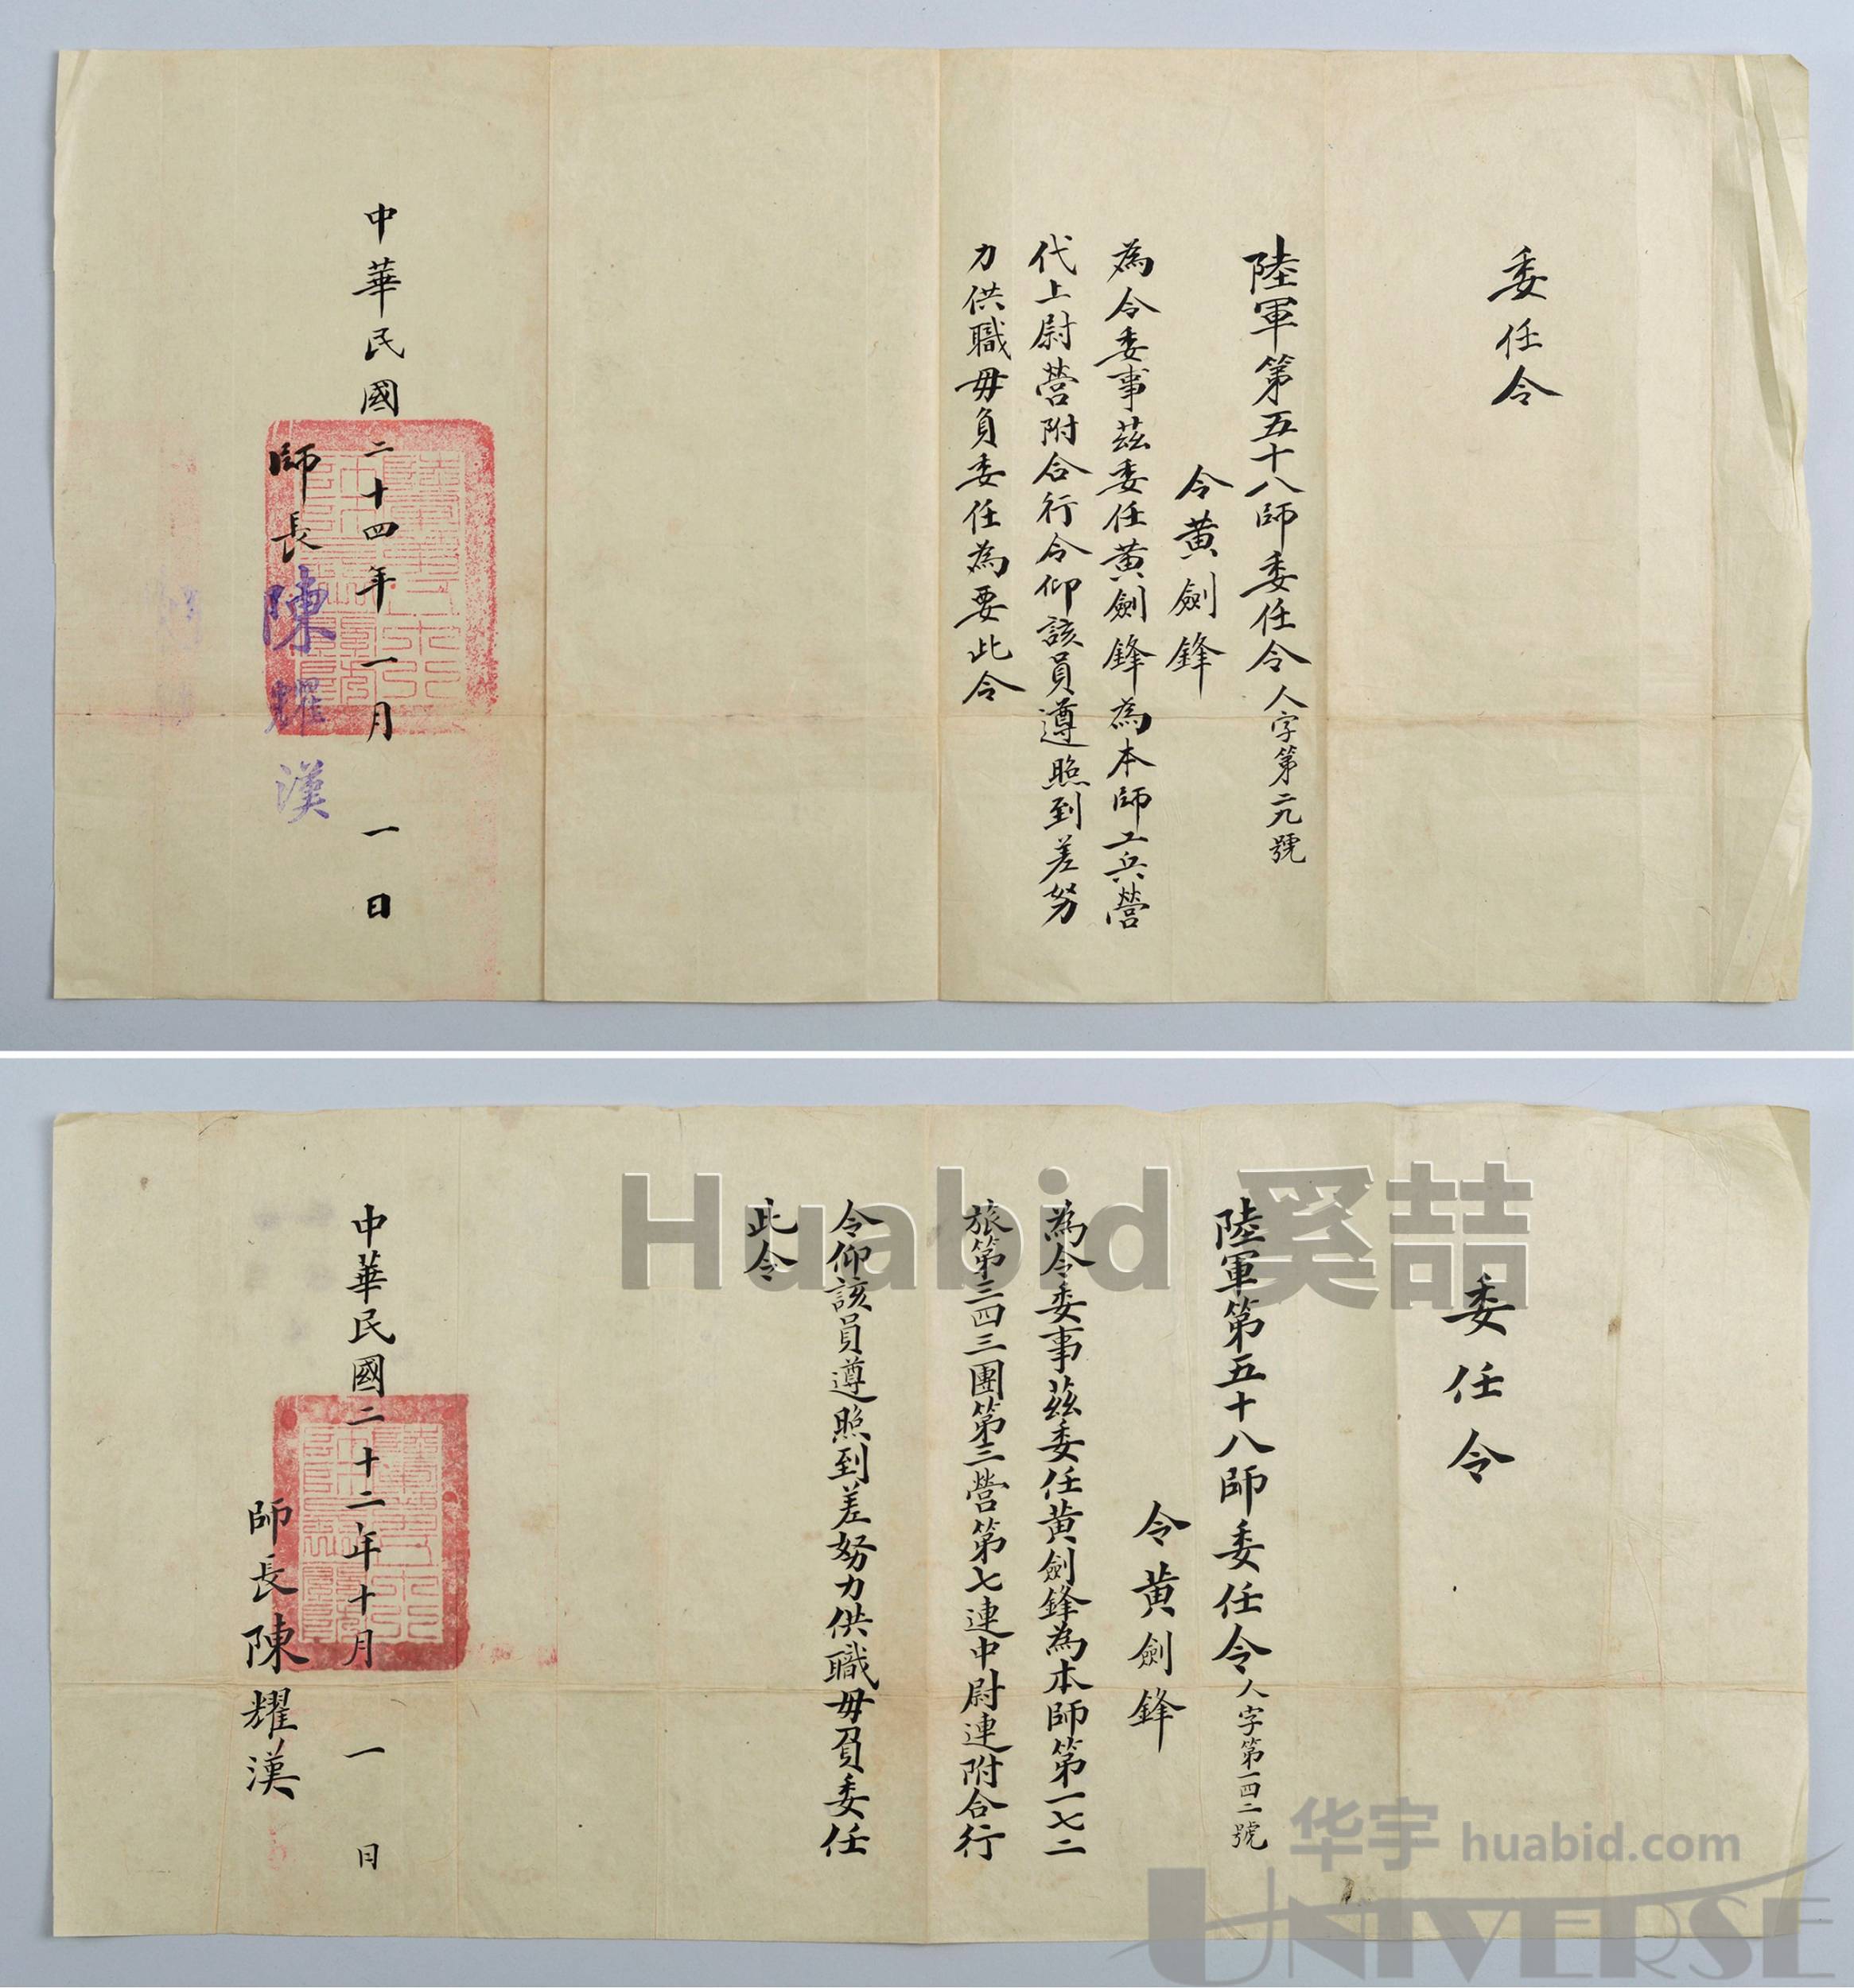 委任令
陸軍第五十八師委任令人字第二九號
令黃劍鋒
為令委事茲委任黃劍鋒為本師工兵營
代上尉營附合行令仰該員遵照到差努
力供職毋負委任為要此令
中華民國二十四年一月一日
師長陳耀漢
委任令
陸軍第五十八師委任令人字第一四二號
令黃劍鋒
為令委事茲委任黃劍鋒為本師第一七二
旅第三四三團第三營第七連中尉連附合行
令仰該員遵照到差努力供職毋負委任
此令
中華民國二十二年十月一日
師長陳耀漢
Huabid 奚喆
华宇 huabid.com
UNIVERSE